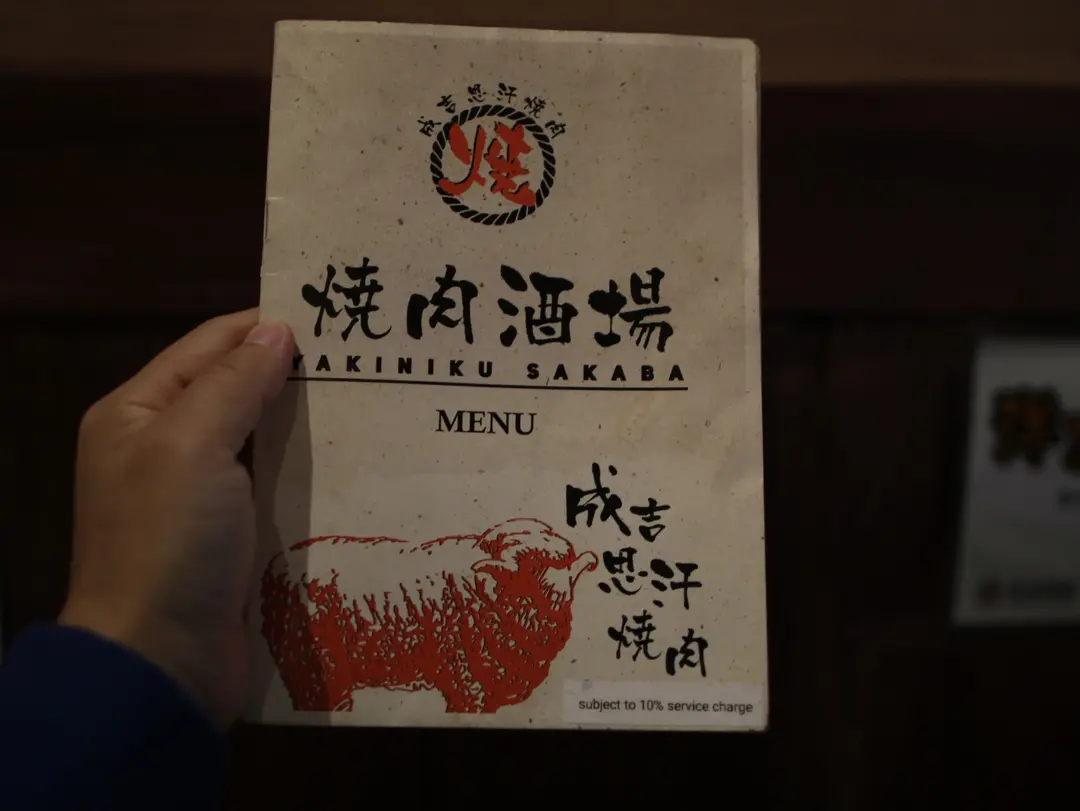 成吉思汗焼肉
焼
焼肉酒場
YAKINIKU SAKABA
MENU
成吉
思汗
焼肉
subject to 10% service charge